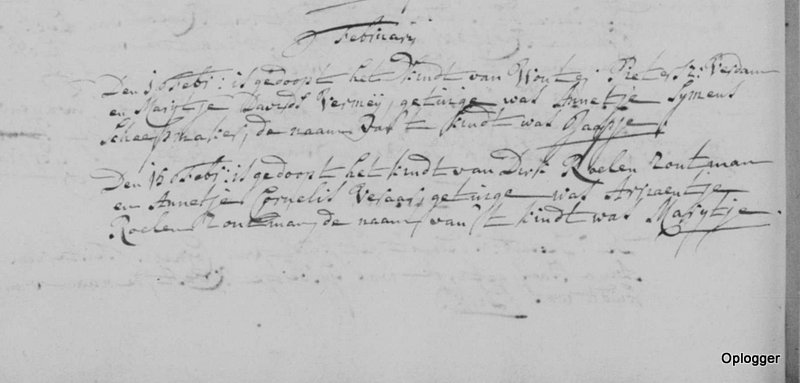 Februarij
Den 1 Febr: is gedoopt het kindt van Wouter Pietersz: Verdam
en Marijtje Davids Vermeij, getuige was Annetje Symens
Scheepmaker, de naam van 't kindt was Jaapje.
Den 15 Febr: is gedoopt het kindt van Dirk Roelen Zoutman
en Annetje Cornelis getuige was Ariaentje
Roelen Zoutman, de naam van 't kindt was Marijtje.
Oplogger